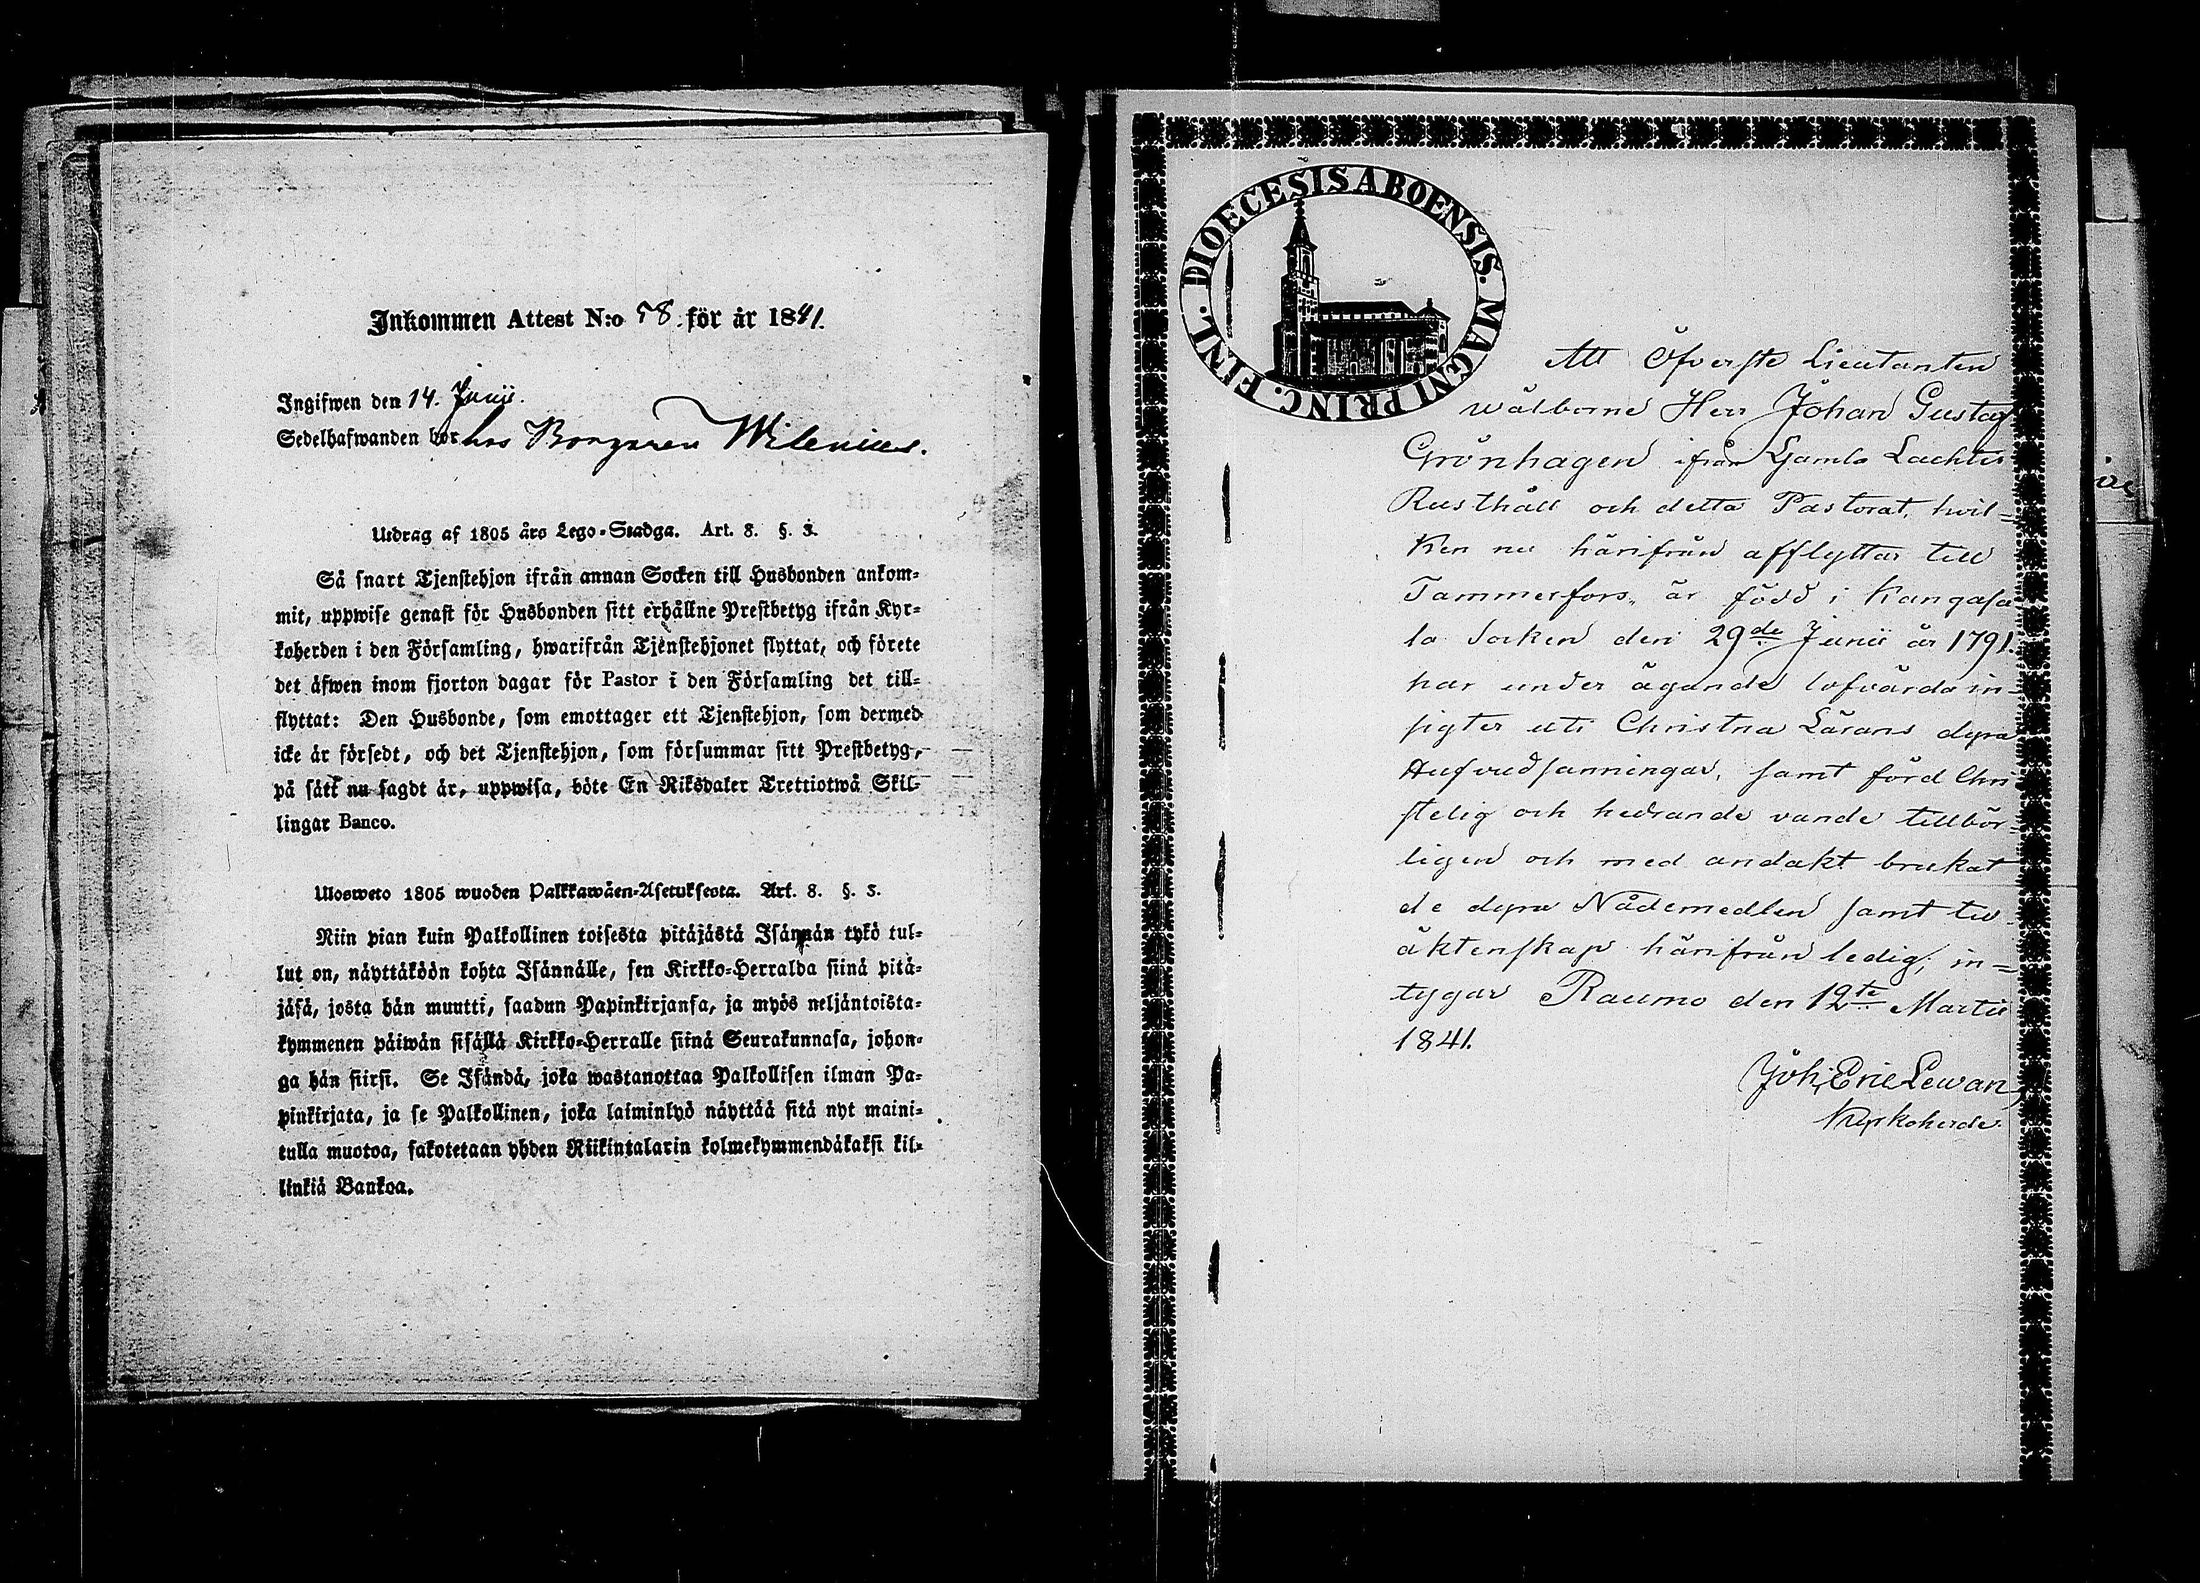 Inkommen Attest N:o 58. för år 1841.
Ingifwen den 14. Junii.
Sedelhafwanden bor hos Borgaren Wilenius.
Utdrag af 1805 års Lego-Stadga. Art. 8. §. 3.
Så snart Tjenstehjon ifrån annan Socken till Husbonden ankom-
mit, uppwise genast för Husbonden sitt erhållne Prestbetyg ifrån Kyr-
koherden i den Församling, hwarifrån Tjenstehjonet flyttat, och förete
det äfwen inom fjorton dagar för Pastor i den Församling det till-
flyttat: Den Husbonde, som emottager ett Tjenstehjon, som dermed
icke är försedt, och det Tjenstehjon, som försummar sitt Prestbetyg,
på sätt nu sagdt är, uppwisa, böte En Riksdaler Trettiotwå Skil-
lingar Banco.
Ulosweto 1805 wuoden Palkkawäen-Asetuksesta. Art. 8. §. 3.
Niin pian kuin Palkollinen toisesta pitäjästä Isännän tykö tul-
lut on, näyttäköön kohta Isännälle, sen Kirkko-Herralda siinä pitä-
jäsä, josta hän muutti, saadun Papinkirjansa, ja myös neljäntoista-
kymmenen päiwän sisällä Kirkko-Herralle siinä Seurakunnasa, johon-
ga hän siirsi. Se Isändä, joka wastanottaa Palkollisen ilman Pa-
pinkirjata, ja se Palkollinen, joka laiminlyö näyttää sitä nyt maini-
tulla muotoa, sakotetaan yhden Riikintalarin kolmekymmendäkaksi kil-
linkiä Bankoa.
DIOECESIS ABOENSIS. MAGNI PRINC. FINL.
Att Öfverste Lieutanten
wälborne Herr Johan Gustaf
Grönhagen ifrån Gamla Lachtis
Rusthåll och detta Pastorat, hvil=
ken nu härifrån afflyttar till
Tammerfors, är född i Kangasa-
la Socken den 29de Junii år 1791.
har under ägande lofvärda in-
sigter uti Christna Lärans dyra
Hufvudsanningar, samt förd Chri
stelig och hedrande vandel tillbör-
ligen och med andakt brukat
de dyra Nådemedlen samt till
äktenskap härifrån ledig; in=
tygar Raumo den 12te Martii
1841.
Joh. Eric Lewan,
Kyrkoherde.